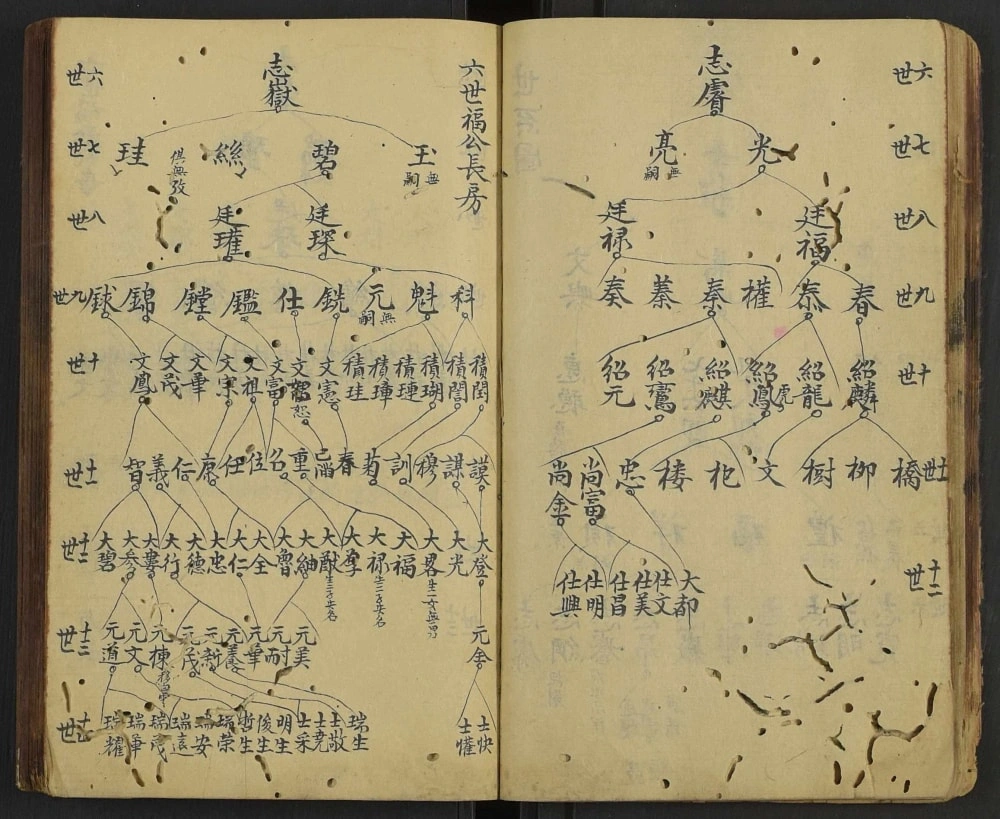 六世
志睿
七世
光
亮 無嗣
八世
廷福
廷禄
九世
春
恭
權
秦
蓁
奏
十世
紹麟
紹龍
虎
紹鳳
紹麒
紹鸞
紹元
十一世
橋
柳
樹
文
杞
楼
忠
尚富
尚金
十二世
大都
仕文
仕美
仕昌
仕明
仕興
六世福公長房
六世
志嶽
七世
玉 無嗣
碧
絲
俱無攷
珪
八世
廷琛
廷璀
九世
科
魁
元 無嗣
銑
仕
鑑
鏜
錦
銶
十世
積閏
積誾
積瑚
積璉
積璋
積珪
文憲
文恕
文富
文祖
文宗
文華
文茂
文鳳
十一世
謨
謀
穆
訓
菊
春
重
名
位
任
康
仁
義
智
十二世
大登
大光
大畧 生一女無男
大福
大禄 生二子失名
大孝
大猷 生三子失名
大紳
大魯
大全
大仁
大忠
大德
大行
大書
大參
大碧
十三世
元金
元美
元耐
元華
元養
元新
元茂
元棟
元文
元道
十四世
士快
士懽
瑞生
士敬
士堯
士采
明生
俊生
哲生
瑞荣
瑞安
瑞遠
瑞茂
瑞華
瑞耀